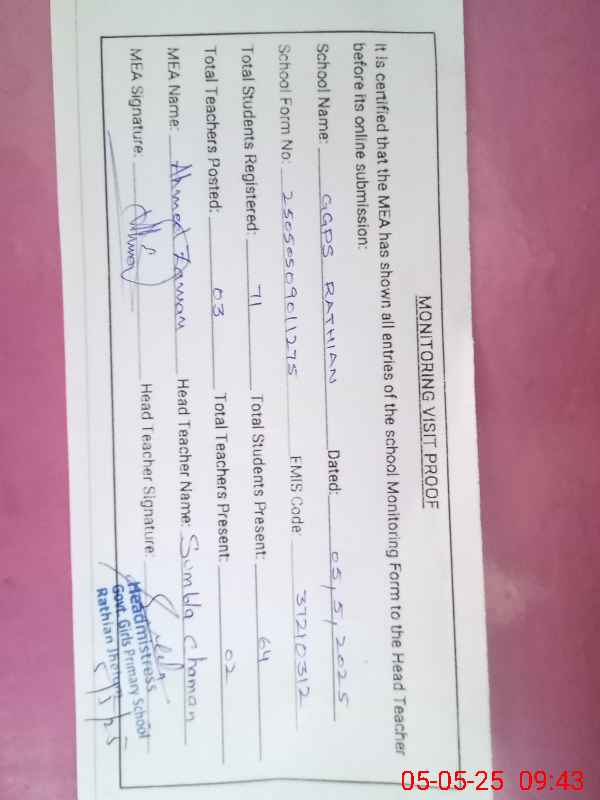 MONITORING VISIT PROOF
It is certified that the MEA has shown all entries of the school Monitoring Form to the Head Teacher
before its online submission:
School Name: GGPS RATHIAN Dated: 05, 5, 2025
School Form No: 25050509011275 EMIS Code 37210312
Total Students Registered: 71 Total Students Present: 64
Total Teachers Posted: 03 Total Teachers Present: 02
MEA Name: Ahmed Zaman Head Teacher Name: Sumbla Chaman
MEA Signature: Head Teacher Signature:
Headmistress
Govt. Girls Primary School
Rathian Jhelum
5/5/25
05-05-25 09:43